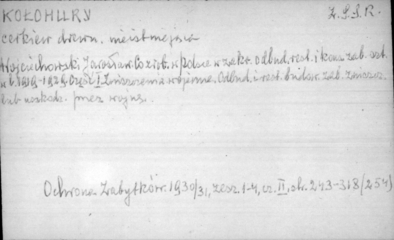 KOŁOHURY Z.S.S.R.
cerkiew drewn. nieistniejąca
Wojciechowski Jarosław. Co zrob. w Polsce w zakr. odbud. rest. i kons. zab. arch.
w l. 1919-1929. Część I Zniszczenia wojenne. Odbud. i rest. budow. zab. zniszcz.
lub uszkodz. przez wojnę.
Ochrona Zabytków. 1930/31, zesz. 1-4, cz. II, str. 243-318 (254)